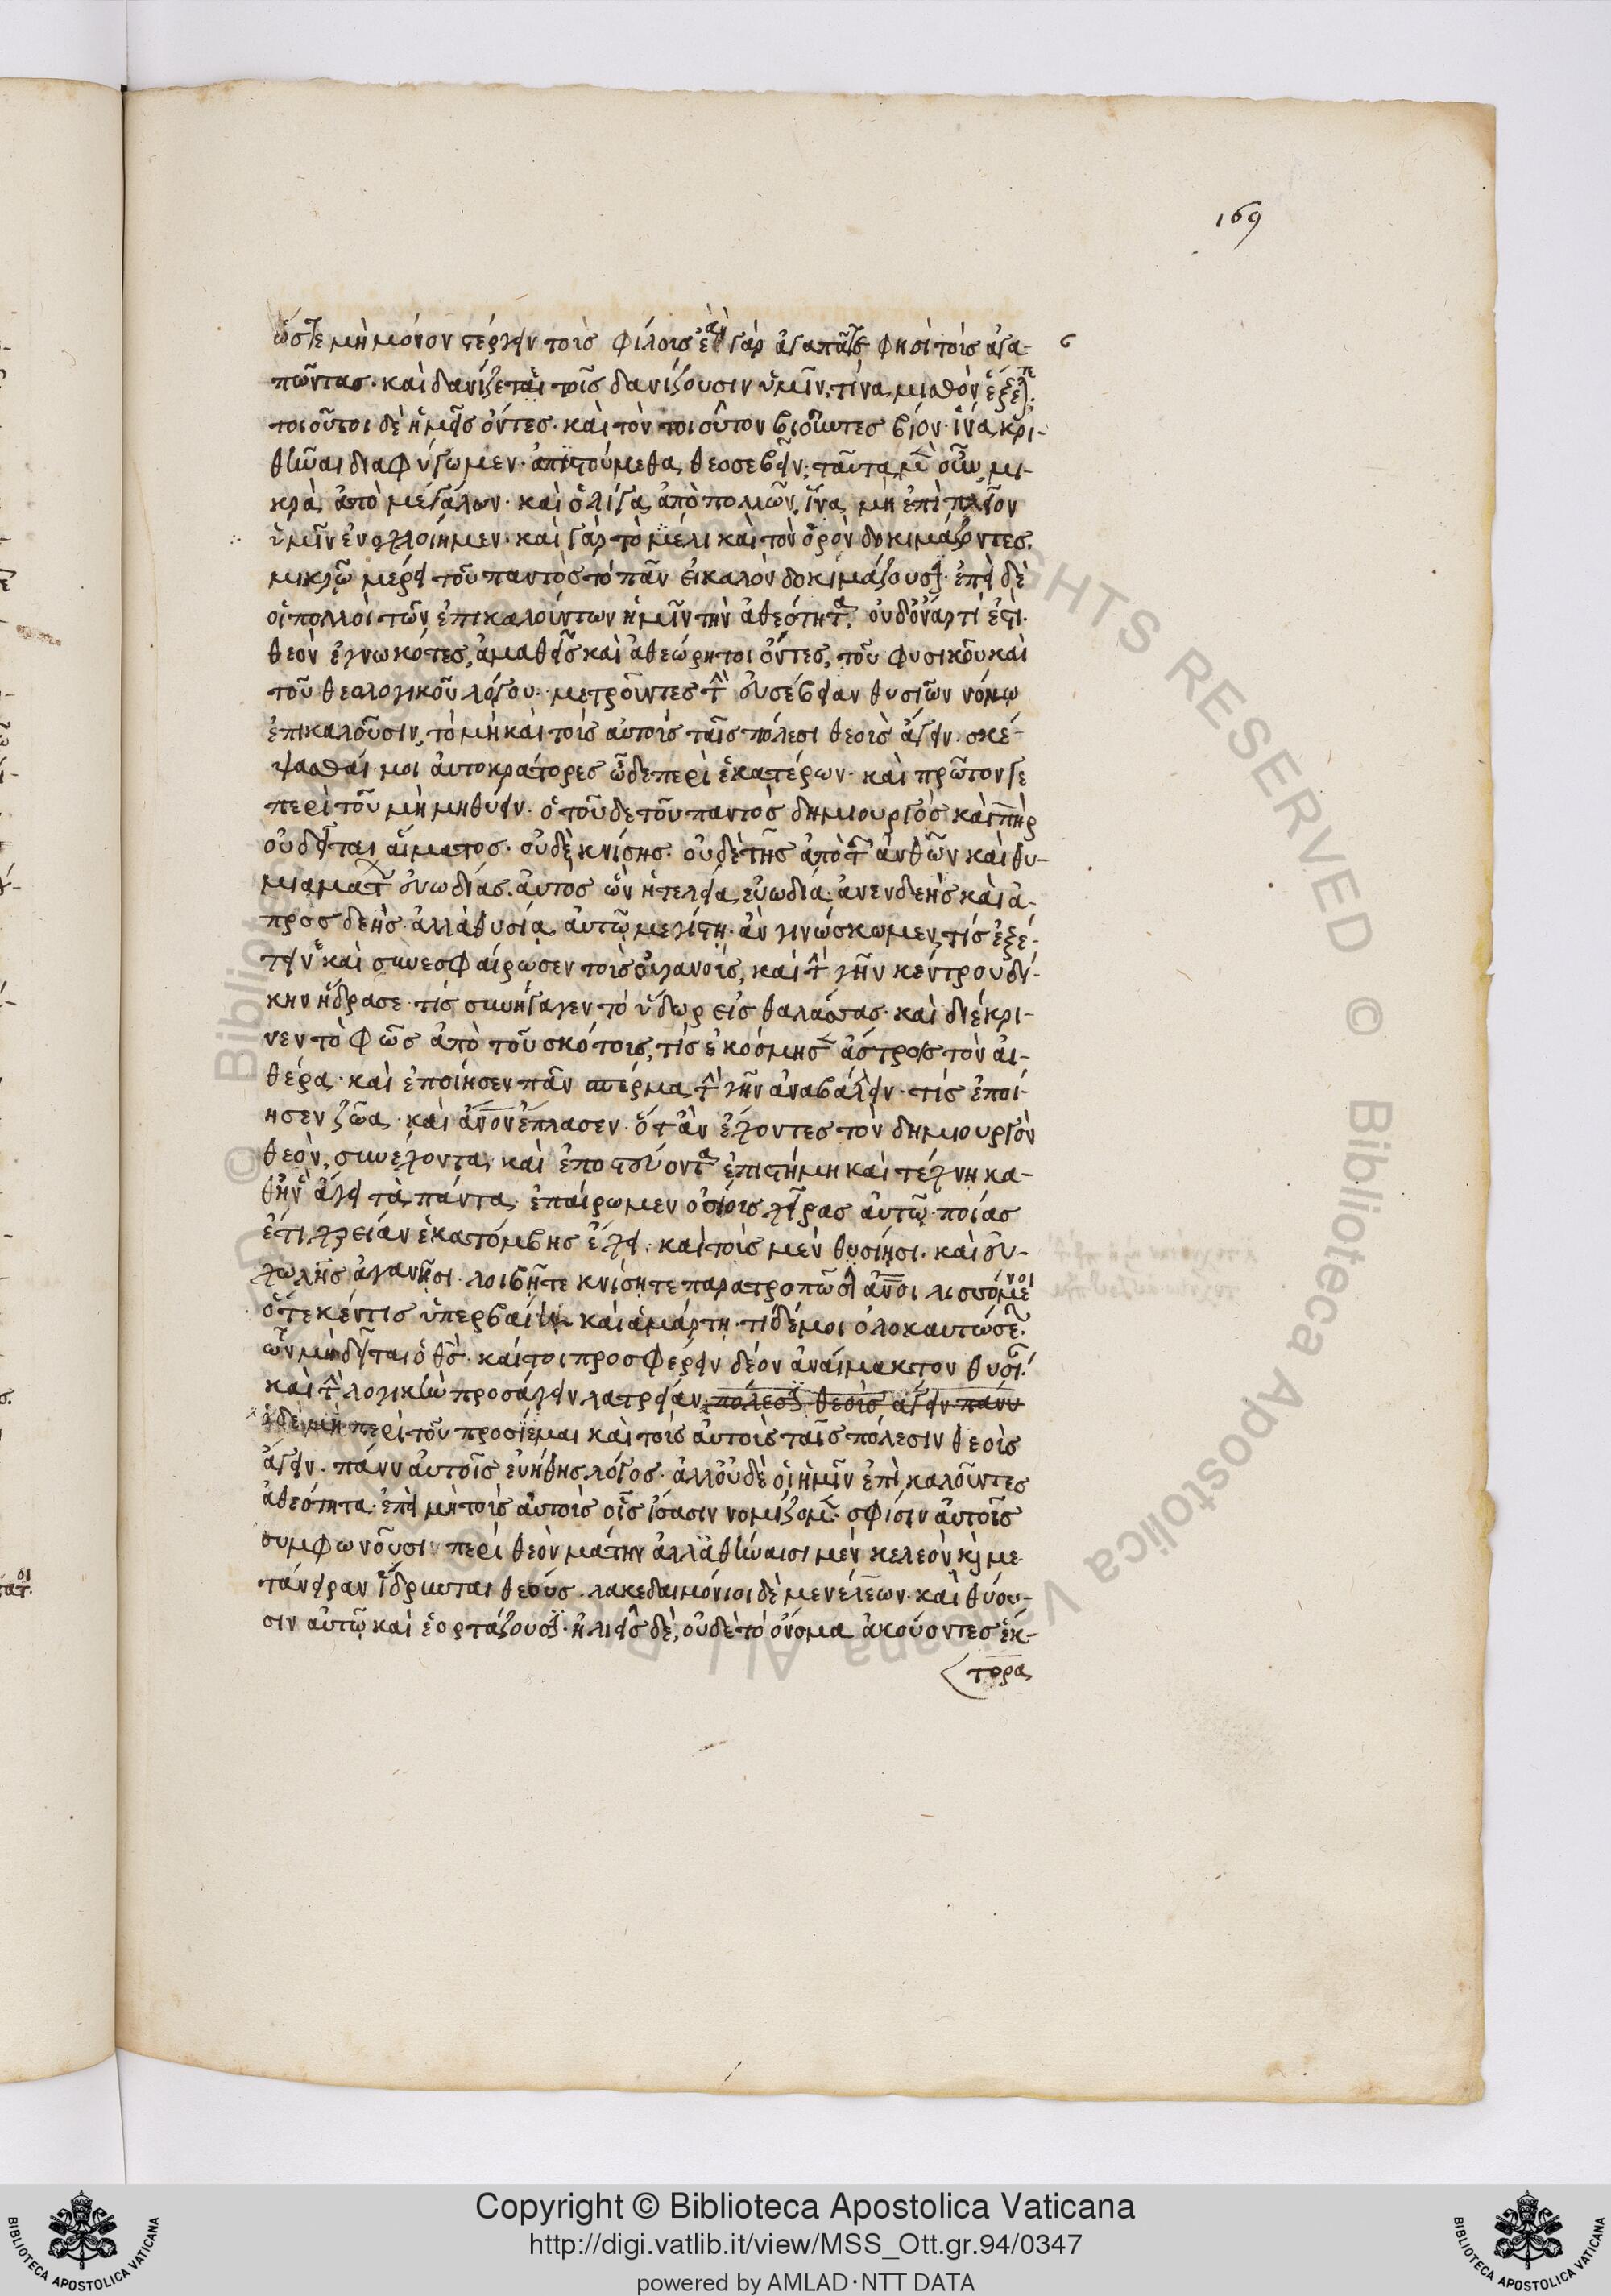 169
ὥστε μὴ μόνον στέργειν τοῖς φίλοις ἐὰν γὰρ ἀγαπᾶτε φησὶ τοῖς ἀγα-
πῶντας· καὶ δανίζεται τοῖς δανίζουσιν ὑμῖν, τίνα μισθὸν ἕξετε
τοιοῦτοι δὲ ἡμεῖς ὄντες· καὶ τὸν τοιοῦτον βιοῦντες βίον· ἵνα κρι-
θῆναι διαφύγωμεν· ἀπιστούμεθα θεοσεβεῖν· ταῦτα μὲν οὖν μι-
κρὰ ἀπὸ μεγάλων· καὶ ὀλίγα ἀπὸ πολλῶν, ἵνα μὴ ἐπὶ πλεῖον
ὑμῖν ἐνοχλοίημεν· καὶ γὰρ τὸ μέλι καὶ τὸν ὀρὸν δοκιμάζοντες,
μικρῷ μέρει τοῦ παντὸς τὸ πᾶν εἰ καλὸν δοκιμάζουσι· ἐπεὶ δὲ
οἱ πολλοὶ τῶν ἐπικαλούντων ἡμῖν τὴν ἀθεότητα, οὐδ' ὄναρ τί ἐστι
θεὸν ἐγνωκότες, ἀμαθεῖς καὶ ἀθεώρητοι ὄντες, τοῦ φυσικοῦ καὶ
τοῦ θεολογικοῦ λόγου· μετροῦντες τὴν εὐσέβειαν θυσιῶν νόμῳ
ἐπικαλοῦσιν, τὸ μὴ καὶ τοῖς αὐτοῖς ταῖς πόλεσι θεοῖς ἄγειν· σκέ-
ψασθαί μοι αὐτοκράτορες ὧδε περὶ ἑκατέρων· καὶ πρῶτον γε
περὶ τοῦ μὴ μὴ θύειν· ὁ τοῦδε τοῦ παντὸς δημιουργὸς καὶ πηρ
οὐ δεῖται αἵματος· οὐδὲ κνίσης· οὐδὲ τῆς ἀπὸ τῶν ἀνθῶν καὶ θυ-
μιαμάτων εὐωδίας. αὐτὸς ὢν ἡ τελεία εὐωδία· ἀνενδεὴς καὶ ἀ-
προσδεής· ἀλλὰ θυσία αὐτῷ μεγίστη· ἂν γινώσκωμεν τίς ἐξέ-
τεινε καὶ συνεσφαίρωσεν τοὺς οὐρανούς, καὶ τὴν γῆν κέντρου δί-
κην ἥδρασε· τίς συνήγαγεν τὸ ὕδωρ εἰς θαλάσσας· καὶ διέκρι-
νεν τὸ φῶς ἀπὸ τοῦ σκότους, τίς ἐκόσμησεν ἄστροις τὸν αἰ-
θέρα· καὶ ἐποίησεν πᾶν σπέρμα τὴν γῆν ἀναβάλλειν· τίς ἐποί-
ησεν ζῷα· καὶ ἄνον ἔπλασεν· ὅταν ἔχοντες τὸν δημιουργὸν
θεὸν, συνέχοντα καὶ ἐποπτεύοντα ἐπιστήμη καὶ τέχνη κα-
θ' ἣν ἄγει τὰ πάντα· ἐπαίρωμεν ὁσίους χεῖρας αὐτῷ· ποίας
ἔτι χρείαν ἑκατόμβης ἔχει· καὶ τοῖς μὲν θυσίῃσι· καὶ εὐ-
χωλῆς ἀγανῇσι· λοιβῆτε κνίσητε παρατροπῶσι ἄνοι λισσόμενοι
ὅτε κέν τις ὑπερβαίη καὶ ἁμάρτῃ· τί δέ μοι ὁλοκαυτώσεων
ὧν μὴ δεῖται ὁ θς· καίτοι προσφέρειν δέον ἀναίμακτον θυσίαν
καὶ τὴν λογικὴν προσάγειν λατρείαν πόλεσι θεοὺς ἄγειν πάνυ
ὁ δὲ μὴ περὶ τοῦ προσιέμαι καὶ τοῖς αὐτοῖς ταῖς πόλεσιν θεοὺς
ἄγειν· πάνυ αὐτοῖς εὐήθης λόγος· ἀλλ' οὐδὲ οἱ ἡμῖν ἐπικαλοῦντες
ἀθεότητα· ἐπεὶ μὴ τοῖς αὐτοῖς οἷς ἴσασιν νομίζομεν· σφίσιν αὐτοῖς
συμφωνοῦσι περὶ θεὸν μάτην ἀλλ' ἀθηναῖοι μὲν κελεὸν καὶ με
τάνειραν ἵδρυνται θεούς· λακεδαιμόνιοι δὲ μενέλεων· καὶ θύου-
σιν αὐτῷ καὶ ἑορτάζουσι· ἠλιεῖς δὲ, οὐδὲ τὸ ὄνομα ἀκούοντες ἕκ-
τορα
Copyright © Biblioteca Apostolica Vaticana
http://digi.vatlib.it/view/MSS_Ott.gr.94/0347
powered by AMLAD·NTT DATA
BIBLIOTECA APOSTOLICA VATICANA
BIBLIOTECA APOSTOLICA VATICANA